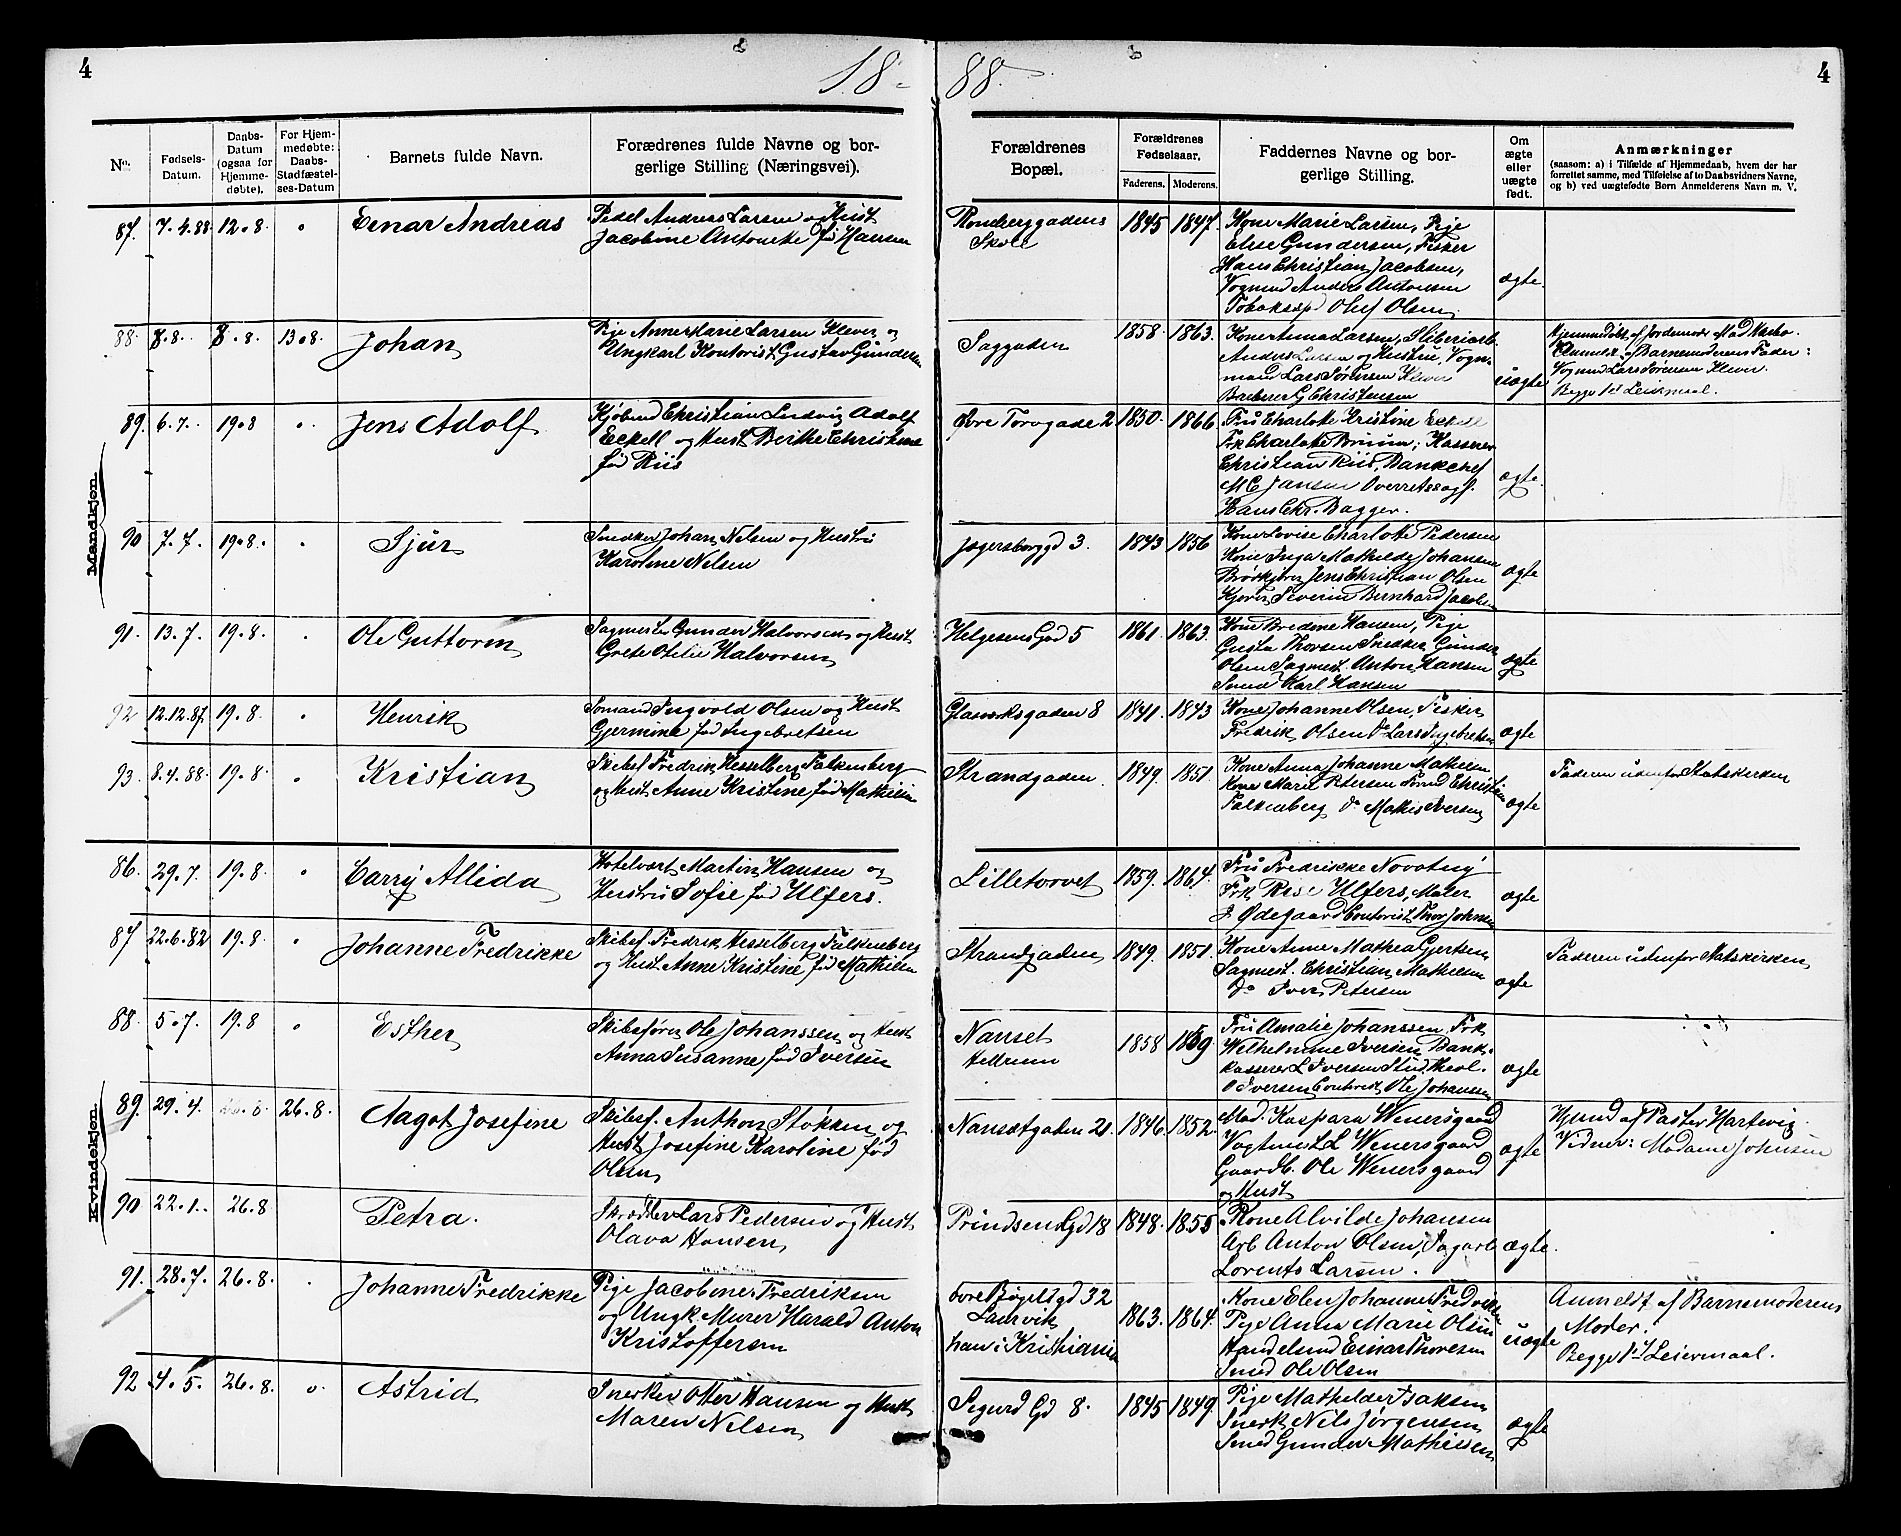 4
18
88.
4
No.
Fødsels-
Datum.
Daabs-
Datum
(ogsaa for
Hjemme-
døbte).
For Hjem-
medøbte:
Daabs-
Stadfæstel-
ses-Datum
Barnets fulde Navn.
Forædrenes fulde Navne og bor-
gerlige Stilling (Næringsvei).
Forældrenes
Bopæl.
Forældrenes
Fødselsaar.
Faderens.
Moderens.
Faddernes Navne og bor-
gerlige Stilling.
Om
ægte
eller
uægte
født.
Anmærkninger
(saasom: a) i Tilfælde af Hjemmedaab, hvem der har
forrettet samme, med Tilføielse af to Daabsvidners Navne,
og b) ved uægtefødte Børn Anmelderens Navn m. V.
Mandkjøn.
87. 7.4.88 12.8. Einar Andreas
Pedel Andreas Larsen og Hust
Jacobine Antonette fød Hansen
Skole
1845 1847.
Kone Marie Larsen, Pige
Elise Gundersen, Fisker
Hans Christian Jacobsen,
Vognmd Anders Antonsen
Oluf Olsen
ægte.
88. 8.8. 8.8. 13.8. Johan
Pige Anne Marie Larsen Klever og
Ungkarl Kontorist Gustav Gundersen
Saggaden
1858. 1863.
Kone Anna Larsen, Sliberiarb.
Anders Larsen og Hustru, Vogn-
mand Lars Sørensen Klever
Barberer G Christensen
uægte
Hjemmedøbt af Jordemoder Mad
Anmeldt af Barnemoderens Fader:
Vogmd Lars Sørensen Klever.
Begges 1st Leiermaal.
89. 6.7. 19.8 Jens Adolf
Kjøbmd Christian Ludvig Adolf
Eckell og Hust Birthe Christine
fød Riis
Øvre Torvgade 2
1850. 1866
Fru Charlotte Kristine Eckell
Frk Charlotte Bruun; Kasserer
Christian Riis, Bankchef
M C Jansen Overretssagf.
Hans Chr. Bagger.
ægte.
90 7.7. 19.8. Sjur
Snedker Johan Nilsen og Hustru
Karoline Nilsen
Jegersborggd 3.
1843 1856
Kone Lovise Charlotte Pedersen
Kone Inga Mathilde Johansen
Jens Christian Olsen
Severin Bernhard Jacobsen
ægte
91. 13.7. 19.8. Ole Guttorm
Sagmester Gunder Halvorsen og Hust
Grete Otelie Halvorsen
Helgesens Gad 5
1861. 1863.
Kone Bredine Hansen, Pige
Gusta Thorsen Snedker Gunder
Olsen Sagmest. Anton Hansen
Smed Karl Hansen
ægte
92 12.12.87. 19.8. Henrik
Sømand Ingvold Olsen og Hust
Gjermine fød Ingebretsen
Glasverksgaden 8
1841. 1843
Kone Johanne Olsen, Fisker
Fredrik Olsen Do Lars Ingebretsen
ægte
93. 8.4.88. 19.8. Kristian
Skibsf Fredrik Hesselberg Falkenberg
og Hust Anne Kristine fød Mathisen
Strandgaden.
1849. 1851.
Kone Anna Johanne Mathisen
Kone Marie Petersen Christian
Falkenberg Do Mathis Iversen
ægte
Faderen udenfor Statskirken
Kvindekjøn.
86. 29.7. 19.8. Carry Allida
Hotelvært Martin Hansen og
Hustru Sofie fød Ulfers.
Lilletorvet
1859. 1864.
Fru Fredrikke Novotny
Frk Rosi Ulfers, Maler
J. Ødegaard Contorist Thor Johnsen
ægte
87 22.6.82 19.8. Johanne Fredrikke
Skibsf. Fredrik Hesselberg Falkenberg
og Hust Anne Kristine fød Mathisen
Strandgaden
1849. 1851.
Kone Anne Mathea Gjertsen
Sagmest. Christian Mathisen
Do Iver Petersen
ægte
Faderen udenfor Statskirken
88. 5.7. 19.8 Esther
Skibsfører Ole Johanssen og Hust
Anna Susanne fød Iversen
Nanset
Hedrum
1858 1859
Fru Amalie Johanssen, Frk
Wilhelmine Iversen, Bank-
kasserer L Iversen Stud. theol.
O Iversen Contorist Ole Johansen
ægte
89. 29.4. 26.8. 26.8. Aagot Josefine
Skibsf. Anthon Stokken og
Hust Josefine Karoline fød
Olsen
Nansetgaden 21.
1846. 1852.
Mad. Kaspara Wenersgaard
Vagtm L L Wenersgaard
Gaardb. Ole Wenersgaard
og Hust
ægte
Hjemd af Pastor Hartvig.
Vidner: Madame Johnsen
90 22.1. 26.8 Petra.
Skrædder Lars Pedersen og Hust
Olava Hansen
Prindsens Gd 18
1848. 1855
Kone Alvilde Johansen
Arb Anton Olsen, Sagarb
Lorents Larsen.
ægte.
91. 28.7. 26.8. Johanne Fredrikke
Pige Jacobine Fredriksen
og Ungk. Murer Harald Anton
Kristoffersen
Bøgelsgd 32
Laurvik
han i Kristiania
1863. 1864.
Kone Elen Johanne Fredrikke
Pige Anna Marie Olsen
Handelsmd Einar Thoresen
Smed Ole Olsen
uægte
Anmeldt af Barnemoderens
Moder.
Begges 1st Leiermaal.
92 4.5. 26.8. Astrid
Snerker Otter Hansen og Hust
Maren Nilsen
Sigurd Gd 8.
1845 1849.
Pige Mathilde Isaksen
Snerk. Nils Jørgensen
Smed Gunder Mathisen
ægte